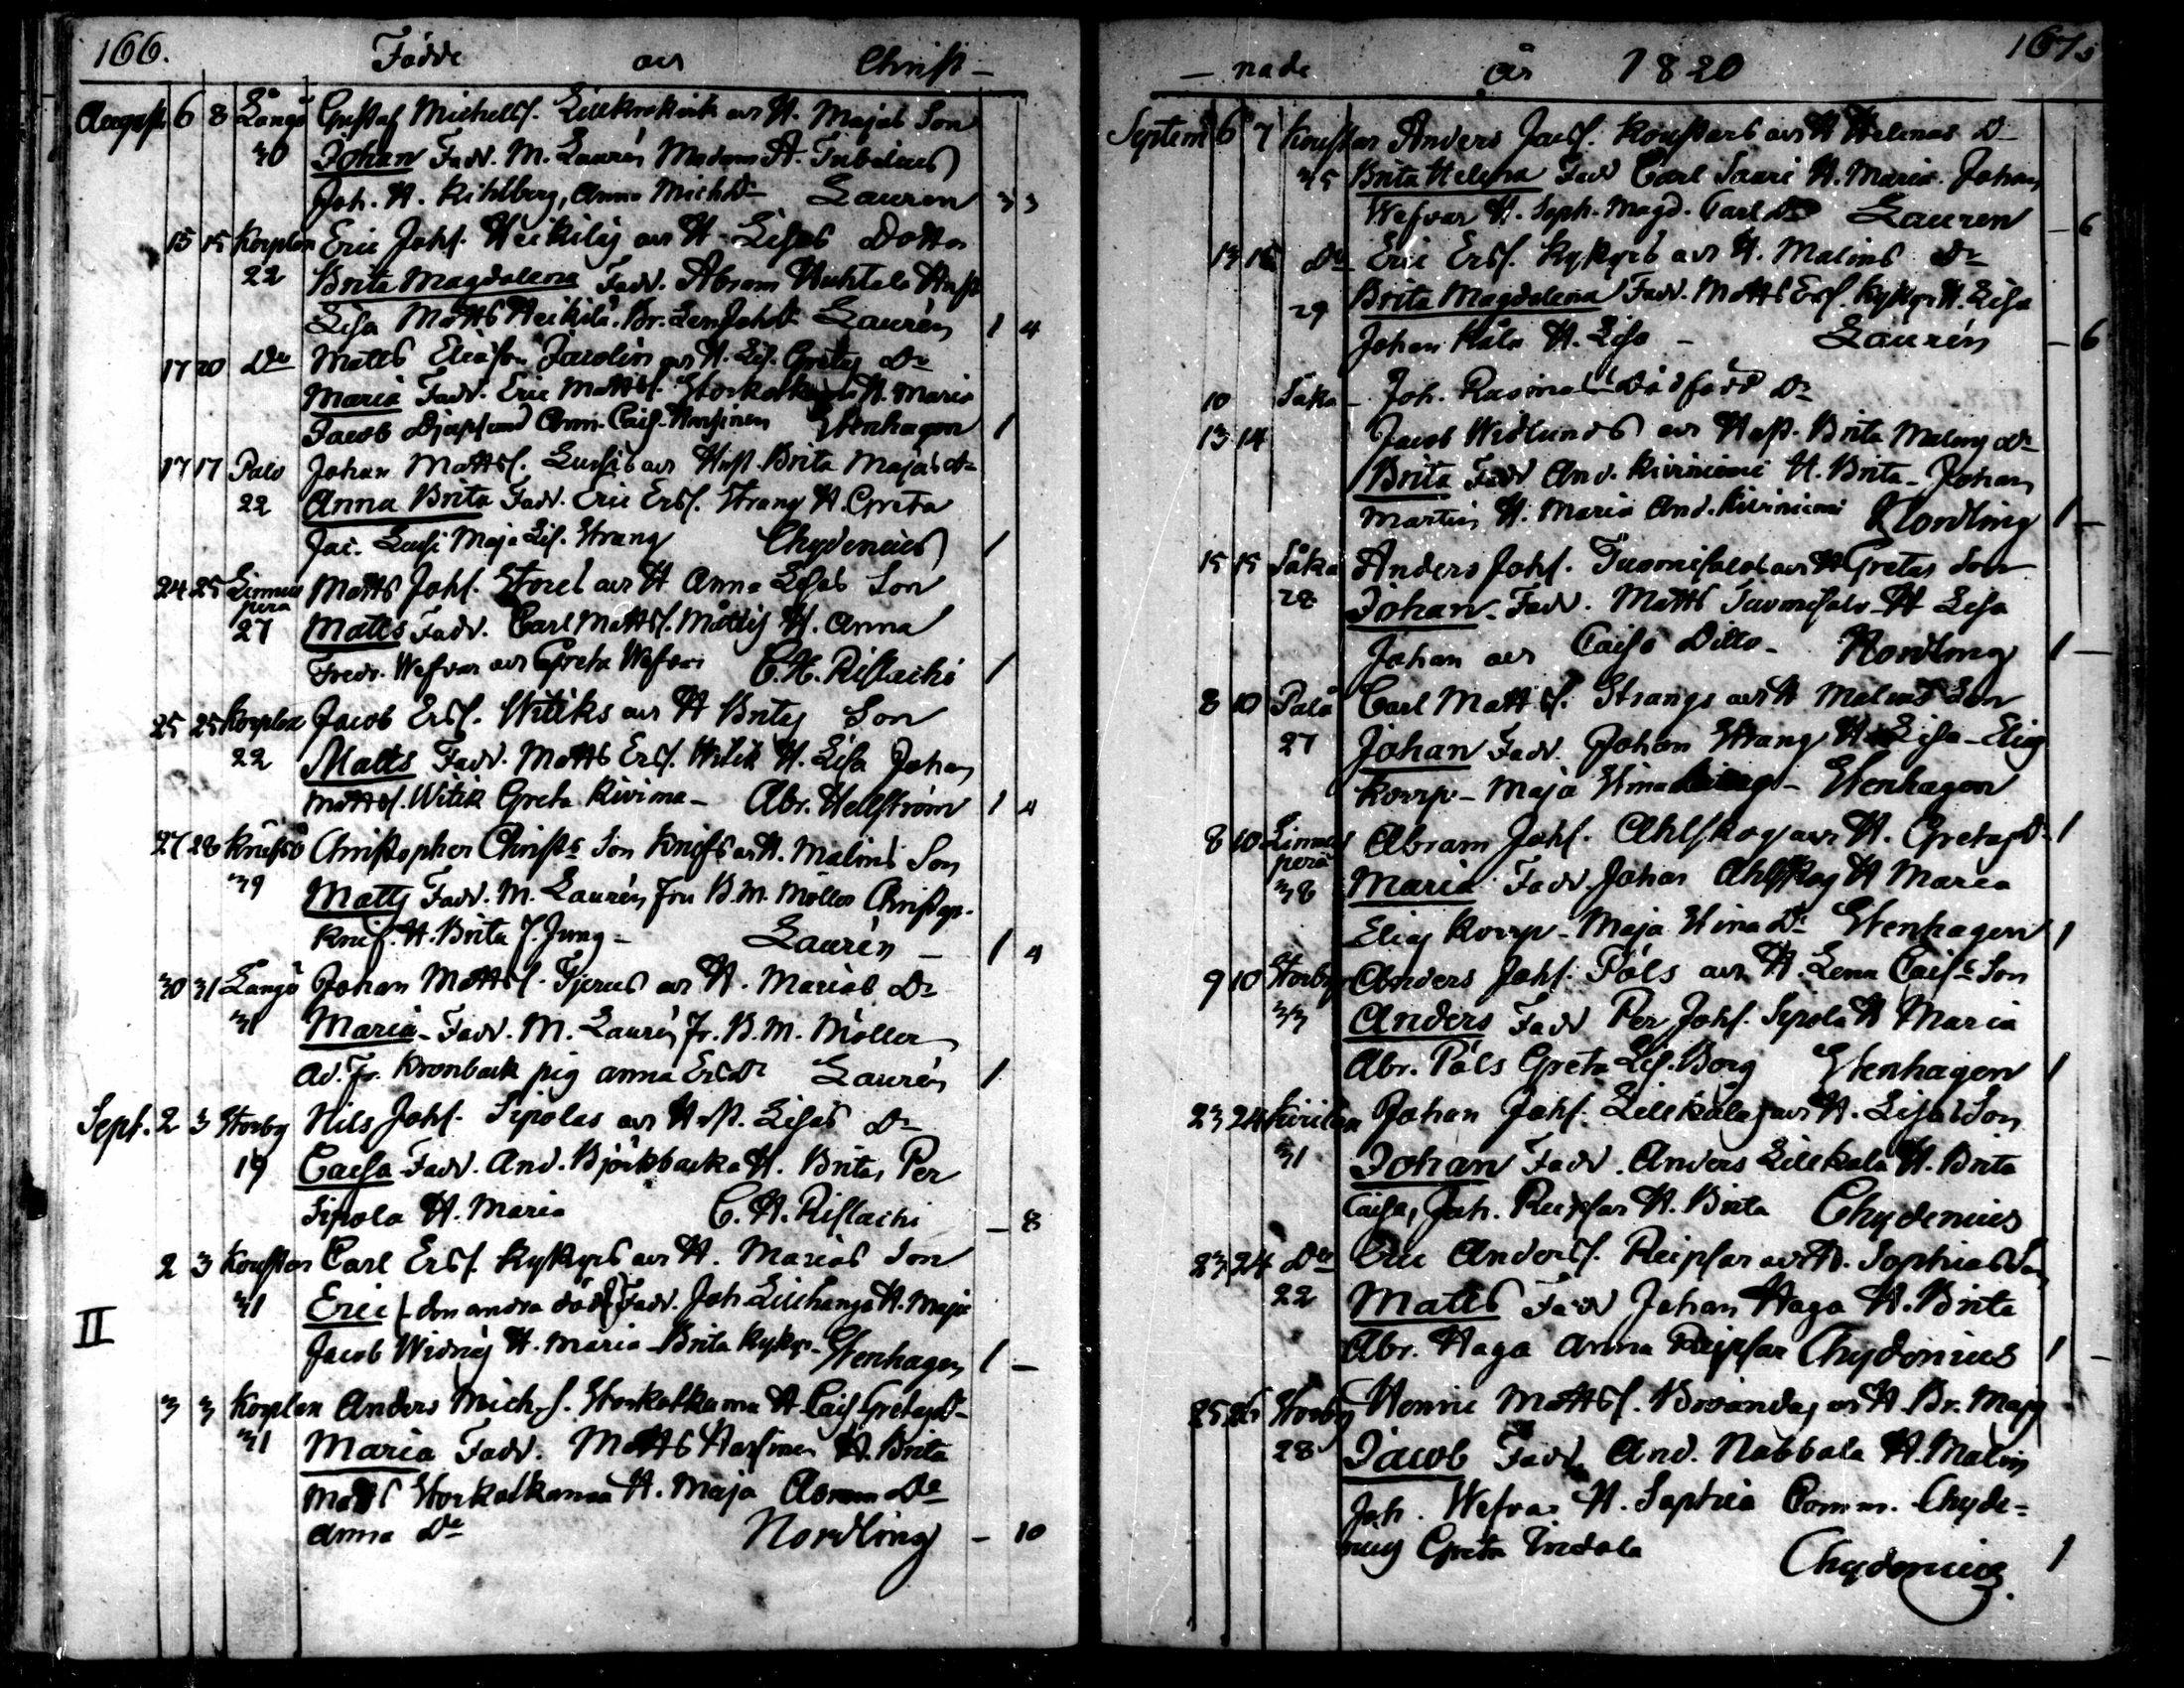 166. Födde och Christ-
Augusti 6 8 Långö Gustaf Michelss. Lillkrokvik och H. Majas Son
30 Johan Fadd. M. Laurén Madam A. Tubelius
Joh. H. Kihlberg, Anna Michdr Lauren 3 3
15 15 Korplax Eric Johs. Heikiläs och H. Lisas Dotter
22 Brita Magdalena Fadd. Abram Huhtala Hust
Lisa Matts Heikilä. Br. Len Johdr Laurén 1 4
17 20 Do Matts Eliasson Jacolin och H. Lis. Gretas Dr
Maria Fadd. Eric Mattss. H. Maria
Jacob Djupsund Ann. Cajs. Stenhagen 1
17 17 Palo Johan Mattss. och Hust. Brita Majas dr
22 Anna Brita Fadd. Eric Erss. Strang H. Greta
Jac. Maja Lis. Strang Chydenius 1
24 25 Linnus
perä Matts Johs. Storel och H Anna Lisas Son
27 Matts Fadd. Carl Mattss. H. Anna
Fredr. Wefvar och Greta Wefvar C. H. Rislachi 1
25 25 Korplax Jacob Erss. Witiks och H Britas Son
22 Matts Fadd. Matts Erss. Witik H. Lisa Johan
Mattss. Witik Greta Kivima - Abr. Hellström 1 4
27 28 Knifsö Christopher Christs Son Knifs och H. Malins Son
39 Matts Fadd. M. Laurén Fru B. M. Möller Christop.
Knif. H. Brita J. Jung - Laurén - 1 4
30 31 Långö Johan Mattss. Tjerus och H. Marias Dr
31 Maria - Fadd. M. Laurén Fr. B. M. Möller
Ad. Fr. Kronback pig anna Ersdr Laurén 1
Sept. 2 3 Storby Nils Johs. Sipolas och Hust. Lisas Dr
19 Caisa Fadd. And. Björkbacka H. Brita, Per
Sipola H. Maria C. H. Rislachi - 8
2 3 Koustar Carl Erss. Kykyrs och H. Marias Son
31 Eric (- den andra död) Fadd. Joh. Lillhanga H. Maja
II Jacob Widnäs H. Maria - Brita Kykyr - Stenhagen 1 -
3 3 Korplax Anders Mich. s. Storkatkama H. Cajs. Gretas dr
31 Maria Fadd. Matts H. Brita
Matts Storkatkama H. Maja Abram Do
Anna Do Nordling - 10
- nade år 1820 167
Septem 6 7 Koustar Anders Jacs. Koustars och H Helenas D
35 Brita Helena Fad Carl Saari H. Maria. Johan
Wefvar H. Soph. Magd. Carl Dr Lauren - 6
13 16 Do Eric Erss. Kykyrs och H. Malins Dr
29 Brita Magdalena Fadd. Matts Ers. Kykyr H. Lisa
Johan Kåla H. Lisa - Laurén - 6
10 Såka - Joh. Rasmus Dödfödd Dr
13 14 Jacob Widlunds och Hust. Brita Malins dr
Brita Fadd And. Kiviniemi H. Brita - Johan
Martin H. Maria And. Kiviniemi Nordling 1 -
15 15 Såka Anders Johs. Tuomisalos och H Gretas Son
28 Johan - Fadd. Matts Tuomisalo - H Lisa
Johan och Caisa Ditto - Nordling 1 -
8 10 Palo Carl Mattss. Strangs och H Malins Son
27 Johan Fadd. Johan Strang H. Lisa - Elias
Korrp - Maja Stina - Stenhagen
8 10 Linnus
perä Abram Johs. Ahlskogs och H. Gretas Dr 1
38 Maria Fadd. Johan Ahlskog H Maria
Elias Korrp - Maja Stina Dr Stenhagen 1
9 10 Storby Anders Johs. Påls och H. Lena Cajs Son
33 Anders Fadd Per Johs. Sipola H Maria
Abr. Påls Greta Lis. Borg Stenhagen 1
23 24 Kivilax Johan Johs. Lillkålas och H. Lisas Son
31 Johan Fadd. Anders Lillkåla H. Brita
Caisa, Joh. Reipsar H. Brita Chydenius
23 24 Do Eric Anderss. Reipsar och H. Sophias Son
22 Matts Fadd Johan Haga H. Brita
Abr. Haga Anna Reipsar Chydenius 1 -
25 26 Storby Henric Mattss. Brandas och H. Br. Majas
28 Jacob Fadd. And. Nabbala H. Malin
Joh. Wefvar H. Sophia Comm. Chyde-
nius Greta Chydenius 1